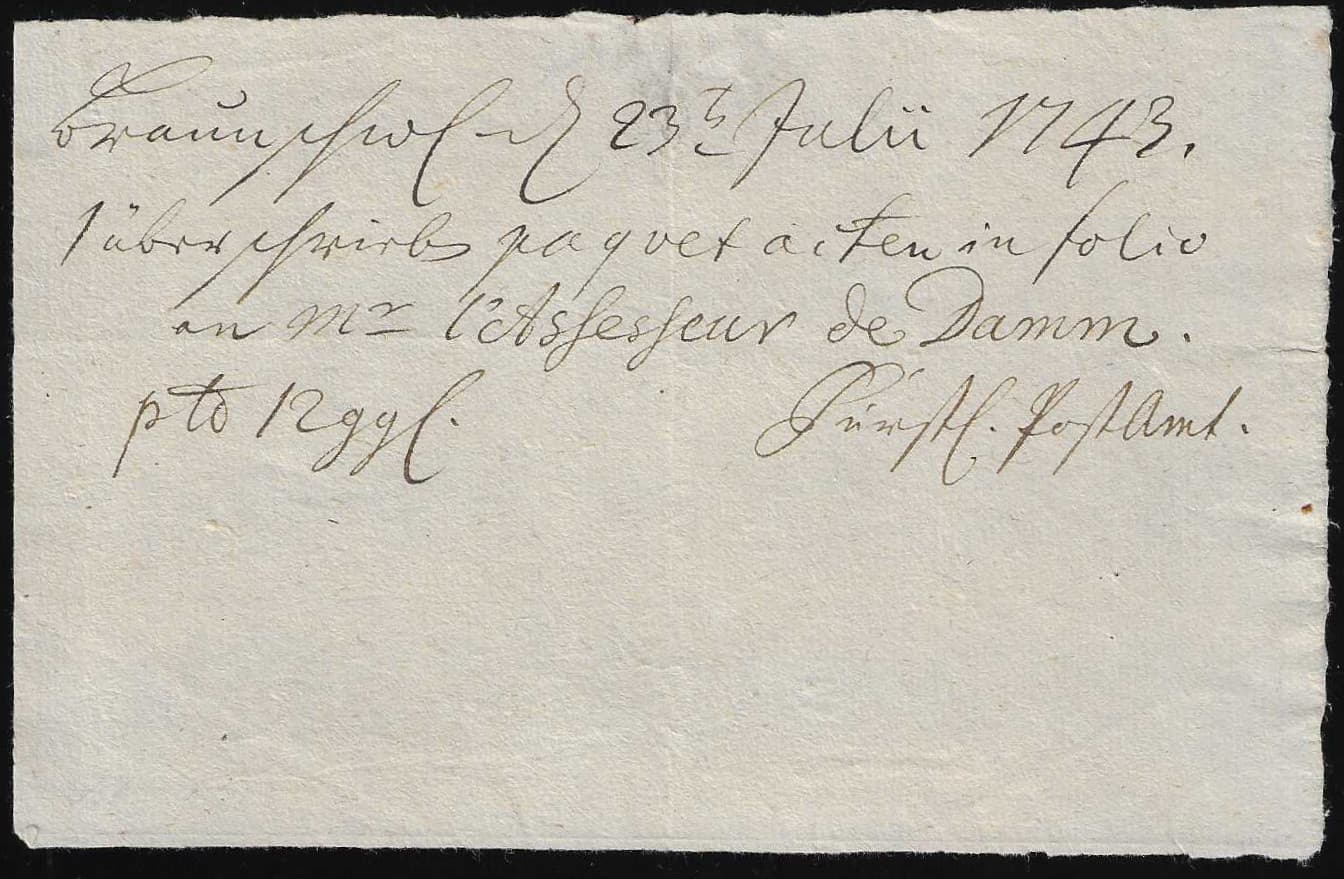 Braunschwl. d. 23t Julii 1743.
1 überschrieb paquet acten in folio
an Mr l'Assesseur de Damm.
pto 12 ggl.
Fürstl. PostAmt.